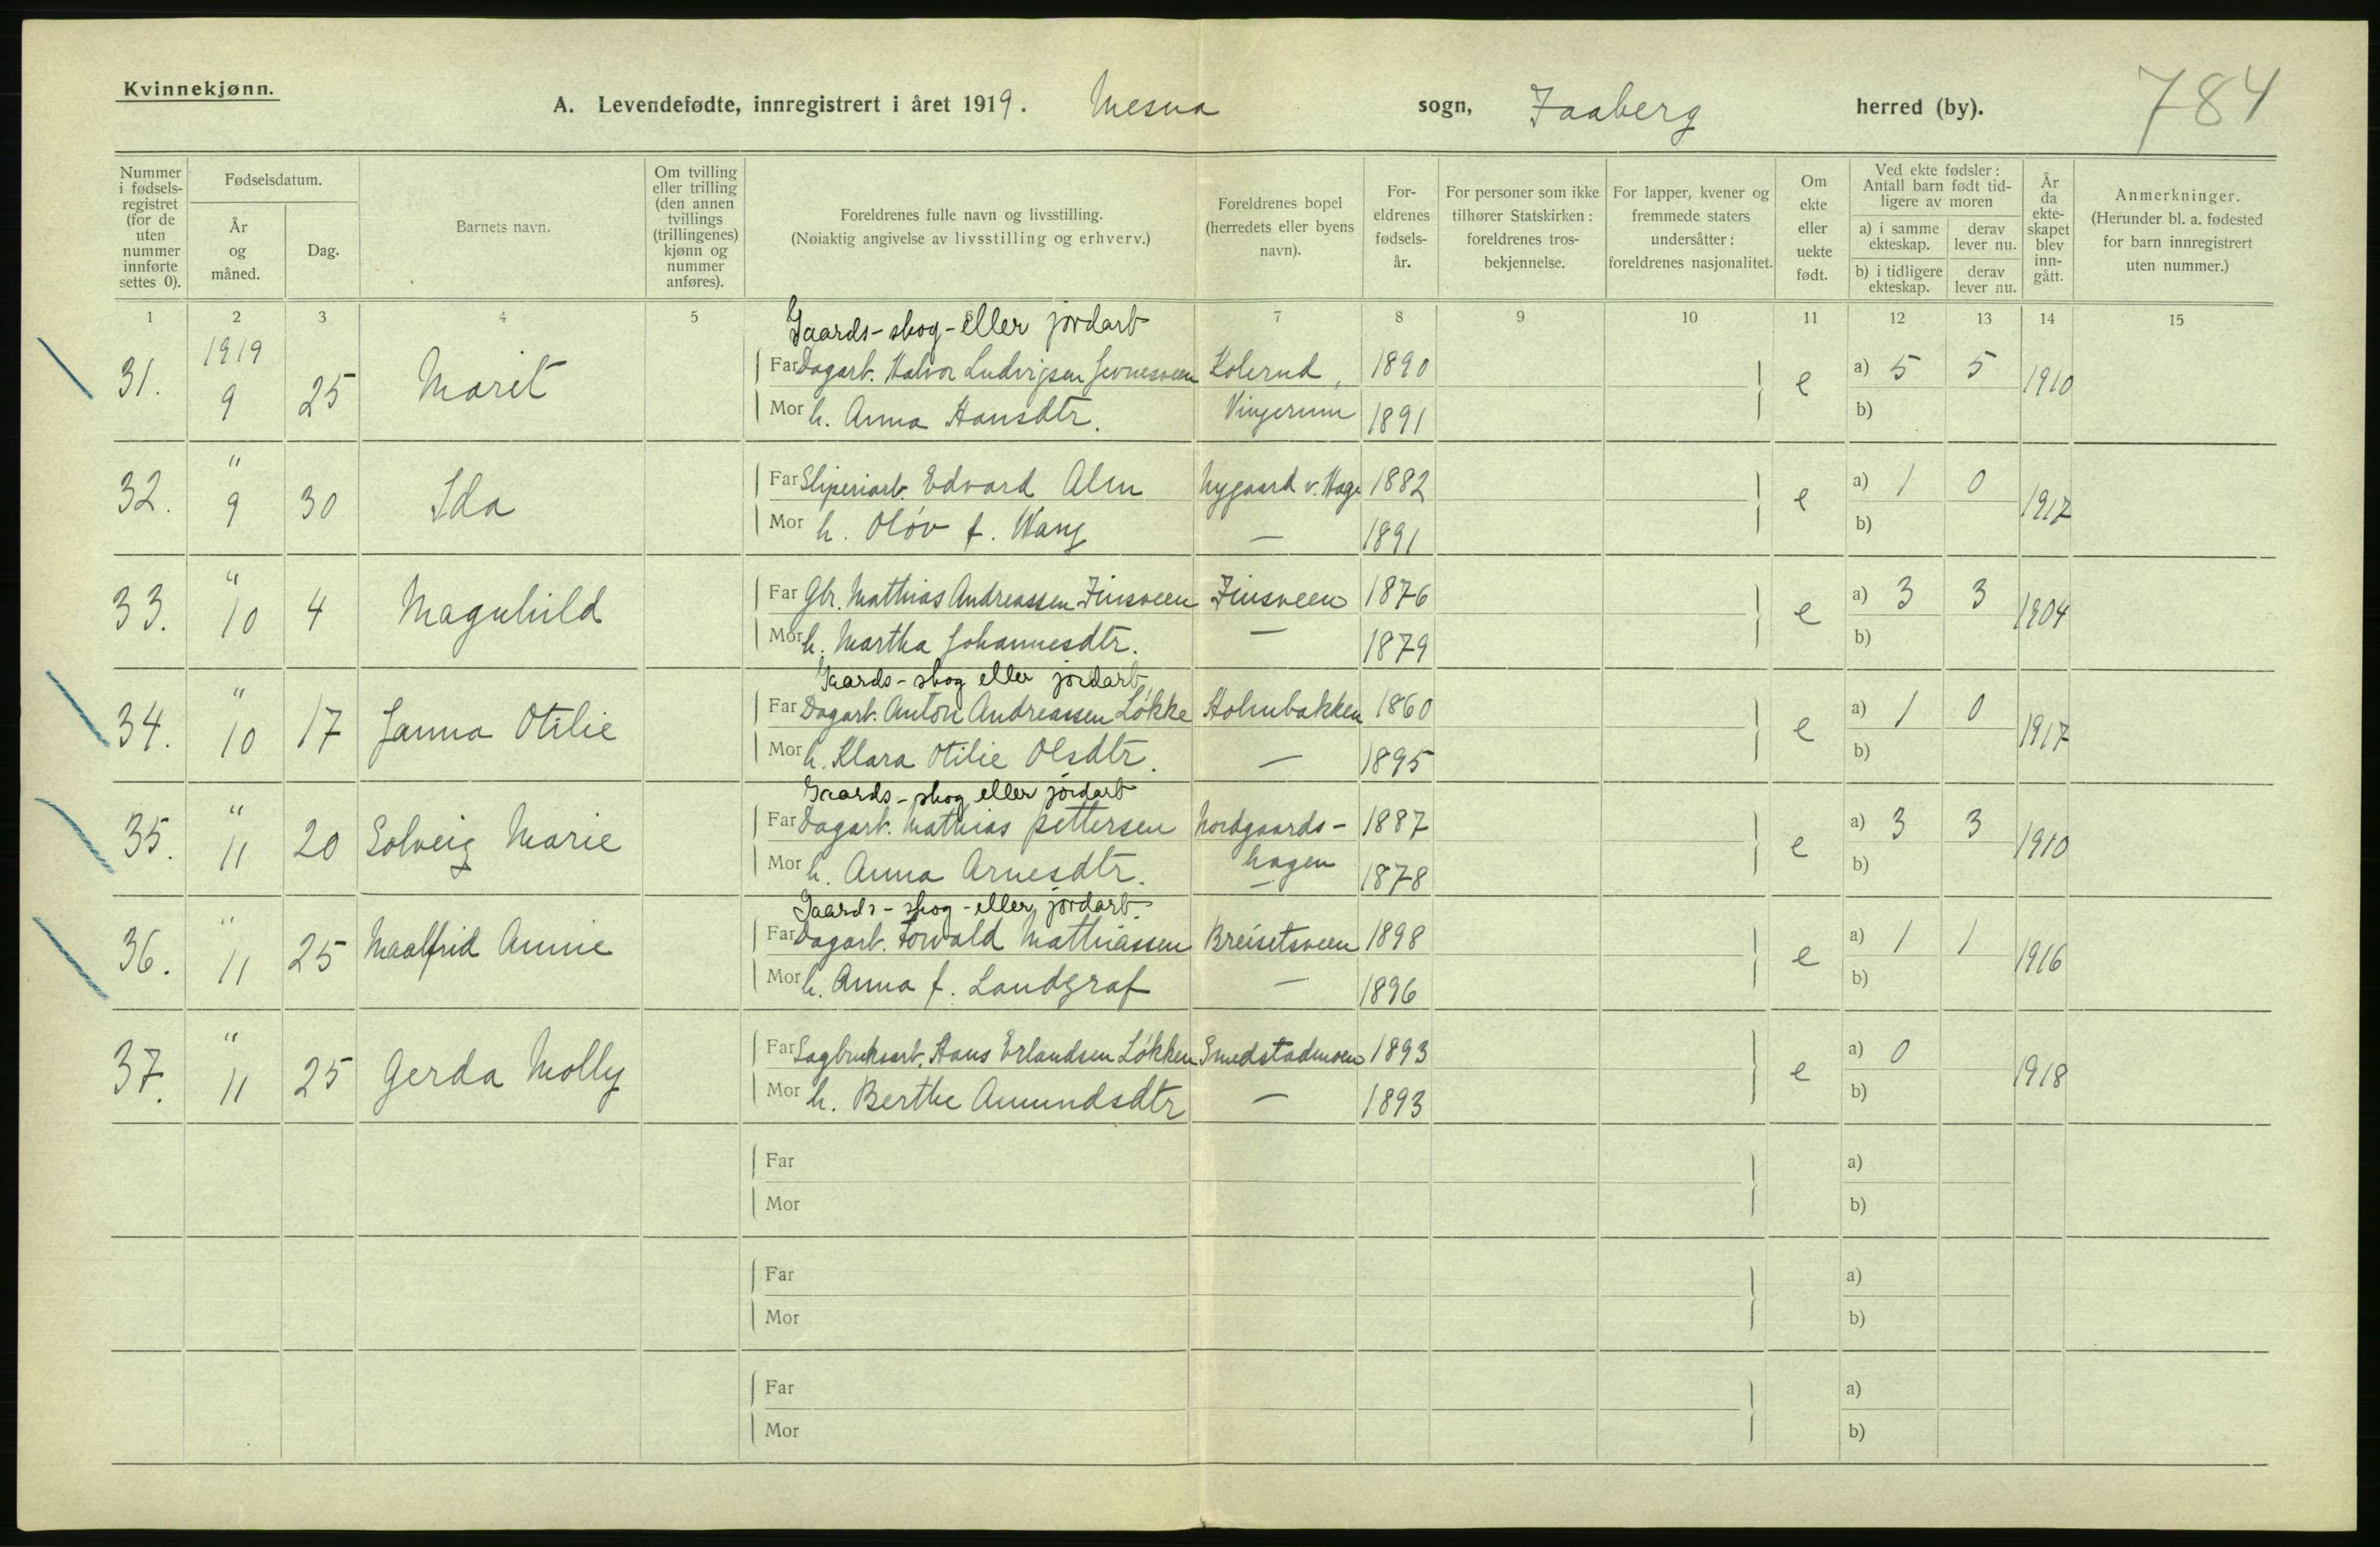 Kvinnekjønn.
A. Levendefødte, innregistrert i året 1919. Mesna sogn, Faaberg herred (by). 784
Nummer i fødsels-registret (for de uten nummer innførte settes 0). | Fødselsdatum. År og måned. | Dag. | Barnets navn. | Om tvilling eller trilling (den annen tvillings (trillingenes) kjønn og nummer anføres). | Foreldrenes fulle navn og livsstilling. (Nøiaktig angivelse av livsstilling og erhverv.) | Foreldrenes bopel (herredets eller byens navn). | For-eldrenes fødsels-år. | For personer som ikke tilhører Statskirken: foreldrenes tros-bekjennelse. | For lapper, kvener og fremmede staters undersåtter: foreldrenes nasjonalitet. | Om ekte eller uekte født. | Ved ekte fødsler: Antall barn født tid-ligere av moren a) i samme ekteskap. derav lever nu. b) i tidligere ekteskap. derav lever nu. | År da ekte-skapet blev inn-gått. | Anmerkninger. (Herunder bl. a. fødested for barn innregistrert uten nummer.)
1 2 3 4 5 7 8 9 10 11 12 13 14 15
Gaards-skog-eller jordarb
31. 1919 9 25 Marit Far Dagarb. Halvor Ludvigsen Kolerud, 1890 e a) 5 5 1910
Mor h. Anna Hansdtr. Vingerum 1891 b)
32. " 9 30 Ida Far Sliperiarb. Edvard Alm Nygaard v. Hage 1882 e a) 1 0 1917
Mor h. Oløv f. Wang — 1891 b)
33. " 10 4 Magnhild Far Gbr. Mathias Andreassen Finsveen Finsveen 1876 e a) 3 3 1904
Mor h. Martha Johannesdtr. — 1879 b)
Gaards-skog eller jordarb
34. " 10 17 Janna Otilie Far Dagarb. Anton Andreassen Løkke Holmbakken 1860 e a) 1 0 1917
Mor h. Klara Otilie Olsdtr. — 1895 b)
Gaards-skog eller jordarb
35. " 11 20 Solveig Marie Far Dagarb. Mathias Pettersen Nordgaards- 1887 e a) 3 3 1910
Mor h. Anna Arnesdtr. hagen — 1878 b)
Gaards-skog-eller jordarb.
36. " 11 25 Maalfrid Annie Far Dagarb. Torvald Mathiassen Breisetsveen 1898 e a) 1 1 1916
Mor h. Anna f. Landgraf — 1896 b)
37. " 11 25 Gerda Molly Far Sagbruksarb. Hans Erlandsen Løkken Smedstadmoen 1893 e a) 0 1918
Mor h. Berthe Amundsdtr — 1893 b)
Far a)
Mor b)
Far a)
Mor b)
Far a)
Mor b)